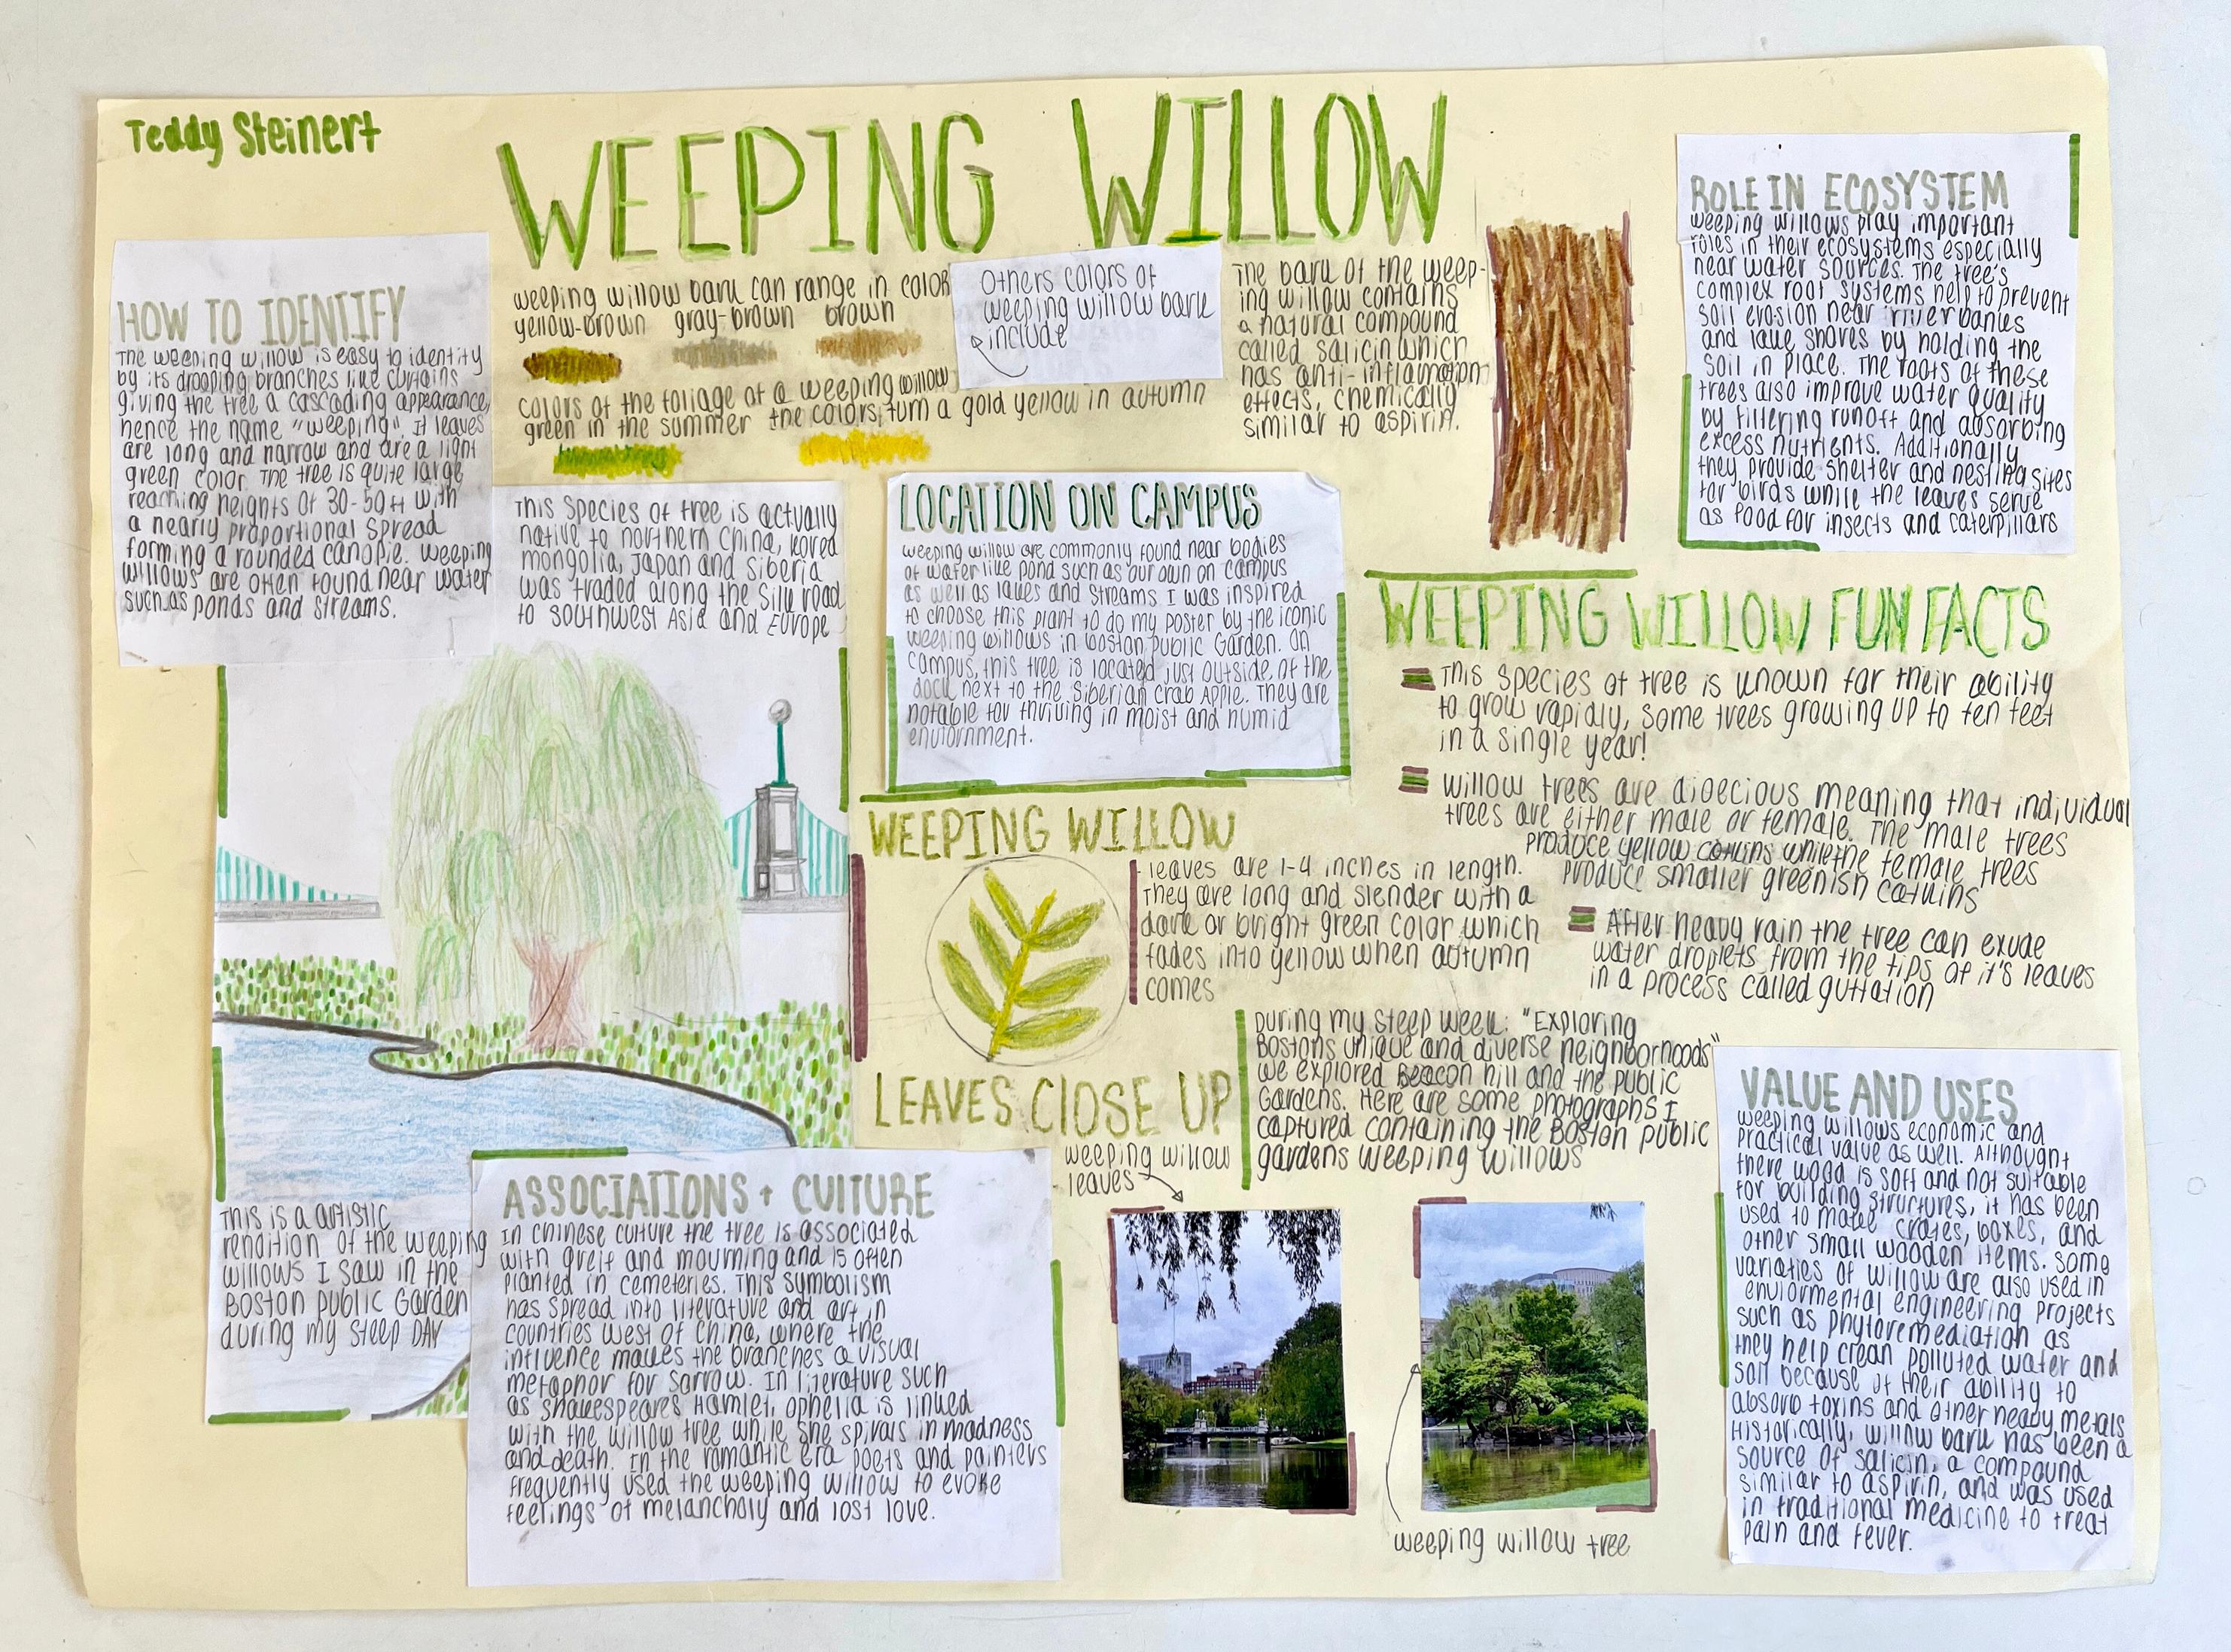 Teddy Steinert
WEEPING WILLOW
HOW TO IDENTIFY
The weeping willow is easy to identity
by its drooping branches like curtains
giving the tree a cascading appearance,
hence the name "weeping". It leaves
are long and narrow and are a light
green color. The tree is quite large
reaching heights of 30-50ft with
a nearly proportional spread
forming a rounded canopie. Weeping
willows are often found near water
such as ponds and streams.
weeping willow bark can range in color
yellow-brown gray-brown brown
Others colors of
weeping willow bark
include
colors of the foliage of a weeping willow
green in the summer the colors turn a gold yellow in autumn
The bark of the weep-
ing willow contains
a natural compound
called salicin which
has anti-inflamation
effects, chemically
similar to aspirin.
ROLE IN ECOSYSTEM
weeping willows play important
roles in their ecosystems especially
near water sources. The tree's
complex root systems help to prevent
soil erosion near riverbanks
and lake shores by holding the
soil in place. The roots of these
trees also improve water quality
by filtering runoff and absorbing
excess nutrients. Additionally
they provide shelter and nesting sites
for birds while the leaves serve
as food for insects and caterpillars
This species of tree is actually
native to northern China, Korea
mongolia, Japan and Siberia
was traded along the Silk road
to southwest Asia and Europe
LOCATION ON CAMPUS
weeping willow are commonly found near bodies
of water like pond such as our own on campus
as well as lakes and streams I was inspired
to choose this plant to do my poster by the iconic
weeping willows in boston Public Garden. On
campus, this tree is located just outside of the
dock next to the Siberian Crab Apple. They are
notable for thriving in moist and humid
enviornment.
WEEPING WILLOW FUN FACTS
This species of tree is known for their ability
to grow rapidly, some trees growing up to ten feet
in a single year!
Willow trees are dioecious meaning that individual
trees are either male or female. The male trees
produce yellow catkins while the female trees
produce smaller greenish catkins
After heavy rain the tree can exude
water droplets from the tips of it's leaves
in a process called guttation
WEEPING WILLOW
leaves are 1-4 inches in length.
They are long and slender with a
dark or bright green color which
fades into yellow when autumn
comes
LEAVES CLOSE UP
During my steep week: "Exploring
Bostons unique and diverse neighborhoods"
we explored Beacon hill and the public
Gardens. Here are some photographs I
captured containing the Boston public
gardens weeping willows
weeping willow
leaves
weeping willow tree
This is a artistic
rendition of the weeping
willows I saw in the
Boston public Garden
during my steep DAY
ASSOCIATIONS + CULTURE
In chinese culture the tree is associated
with greif and mourning and is often
planted in cemeteries. This symbolism
has spread into literature and art in
countries west of China, where the
influence makes the branches a visual
metaphor for sorrow. In literature such
as Shakespeares Hamlet, Ophelia is linked
with the willow tree while she spirals in madness
and death. In the romantic era poets and painters
frequently used the weeping willow to evoke
feelings of melancholy and lost love.
VALUE AND USES
weeping willows economic and
practical value as well. Althought
there wood is soft and not suitable
for building structures, it has been
used to make crates, boxes, and
other small wooden items. Some
varieties of willow are also used in
enviormental engineering projects
such as phytoremediation as
they help clean polluted water and
soil because of their ability to
absorb toxins and other heavy metals
Historically, willow bark has been a
source of salicin, a compound
similar to aspirin, and was used
in traditional medicine to treat
pain and fever.